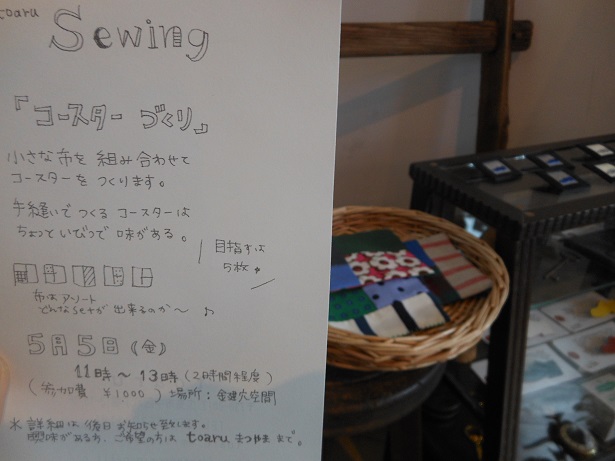 toaru
Sewing
『コースター づくり』
小さな布を 組み合わせて
コースターを つくります。
手縫いで つくる コースターは
ちょっと いびつで 味がある。
目指すは
5枚
布は アソート
どんなsetが 出来るのか〜 ♪
5月5日(金)
11時〜13時(2時間程度)
(参加費 ¥1000) 場所:金鍵穴空間
※ 詳細は 後日 お知らせ致します。
興味がある方、ご希望の方は toaru まつやま まで。